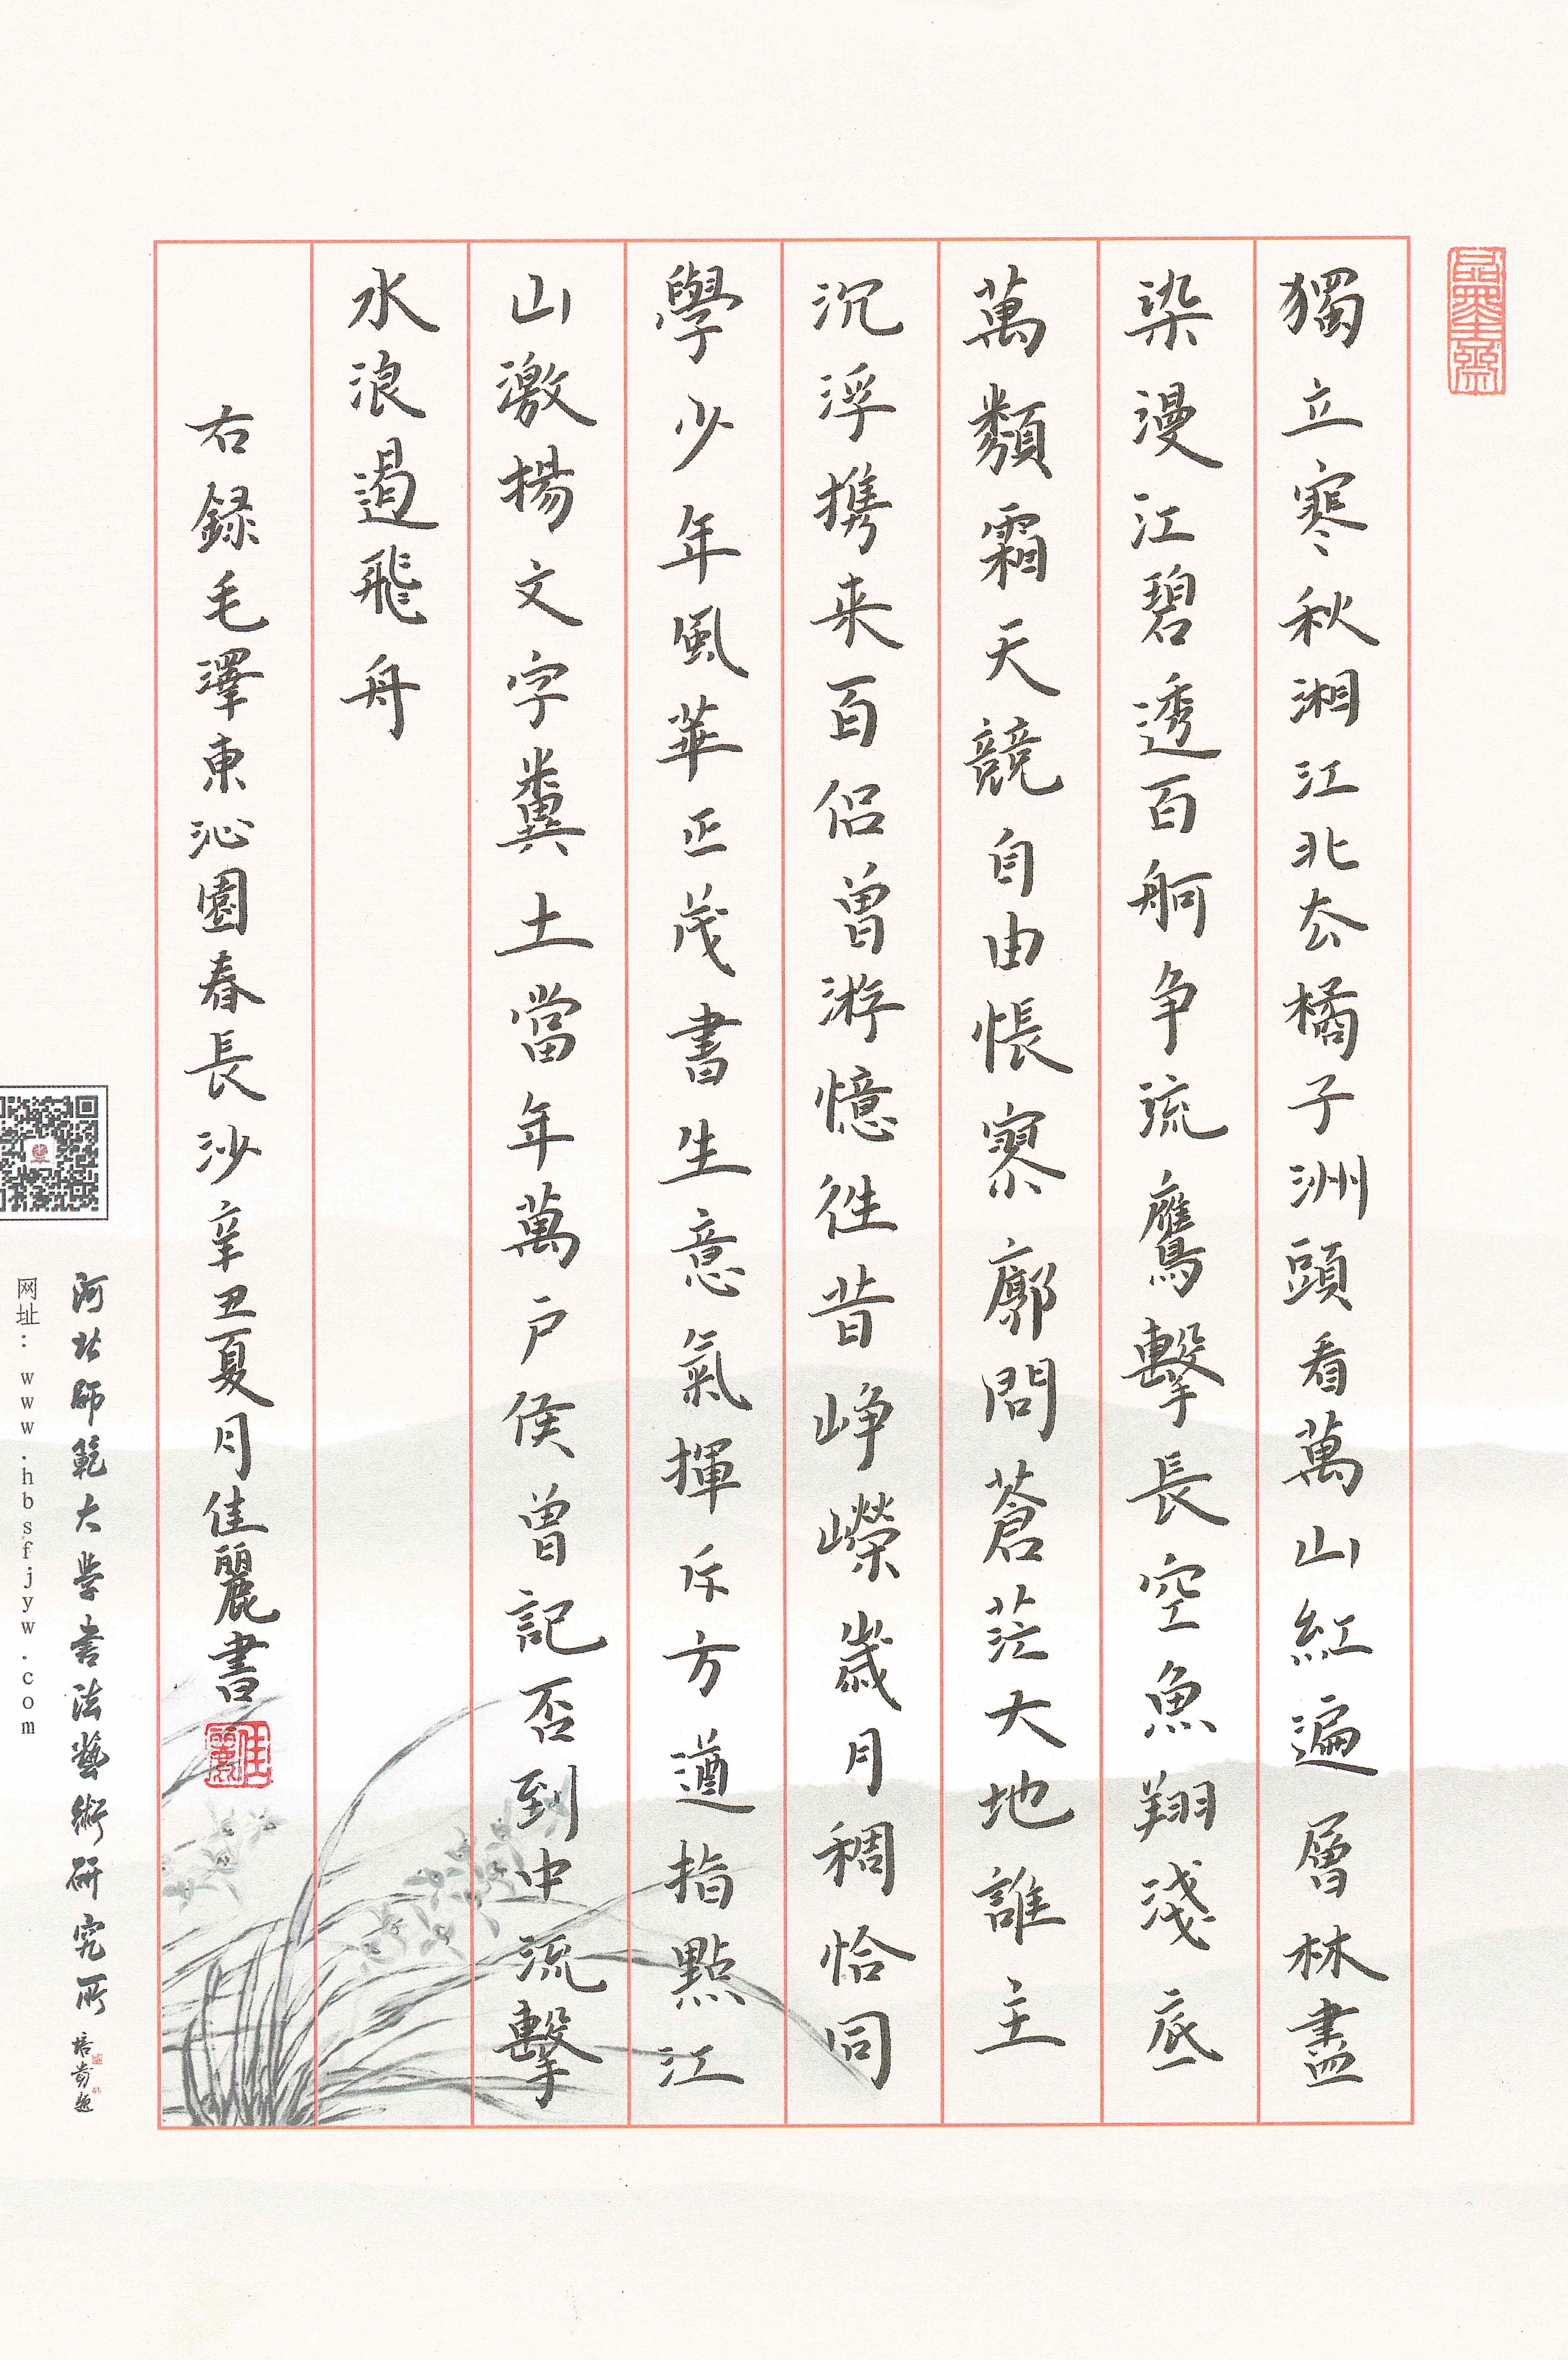 晶墨齋
獨立寒秋湘江北去橘子洲頭看萬山紅遍層林盡
染漫江碧透百舸争流鷹擊長空魚翔淺底
萬類霜天競自由悵寥廓問蒼茫大地誰主
沉浮携来百侣曾游憶往昔峥嶸歲月稠恰同
學少年風華正茂書生意氣揮斥方遒指點江
山激揚文字糞土當年萬户侯曾記否到中流擊
水浪遏飛舟
右録毛澤東沁園春長沙辛丑夏月佳麗書
佳麗
河北师範大学書法藝術研究所
网址：www.hbsfjyw.com